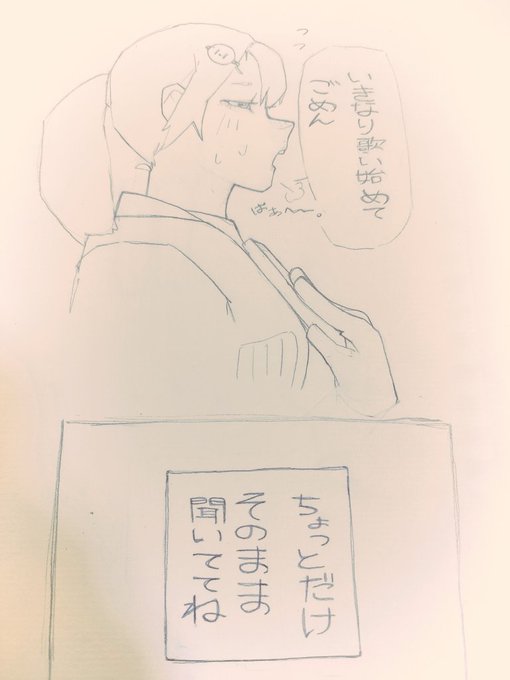 いきなり歌い始めて
ごめん
はぁ〜〜。
ちょっとだけ
そのまま
聞いててね